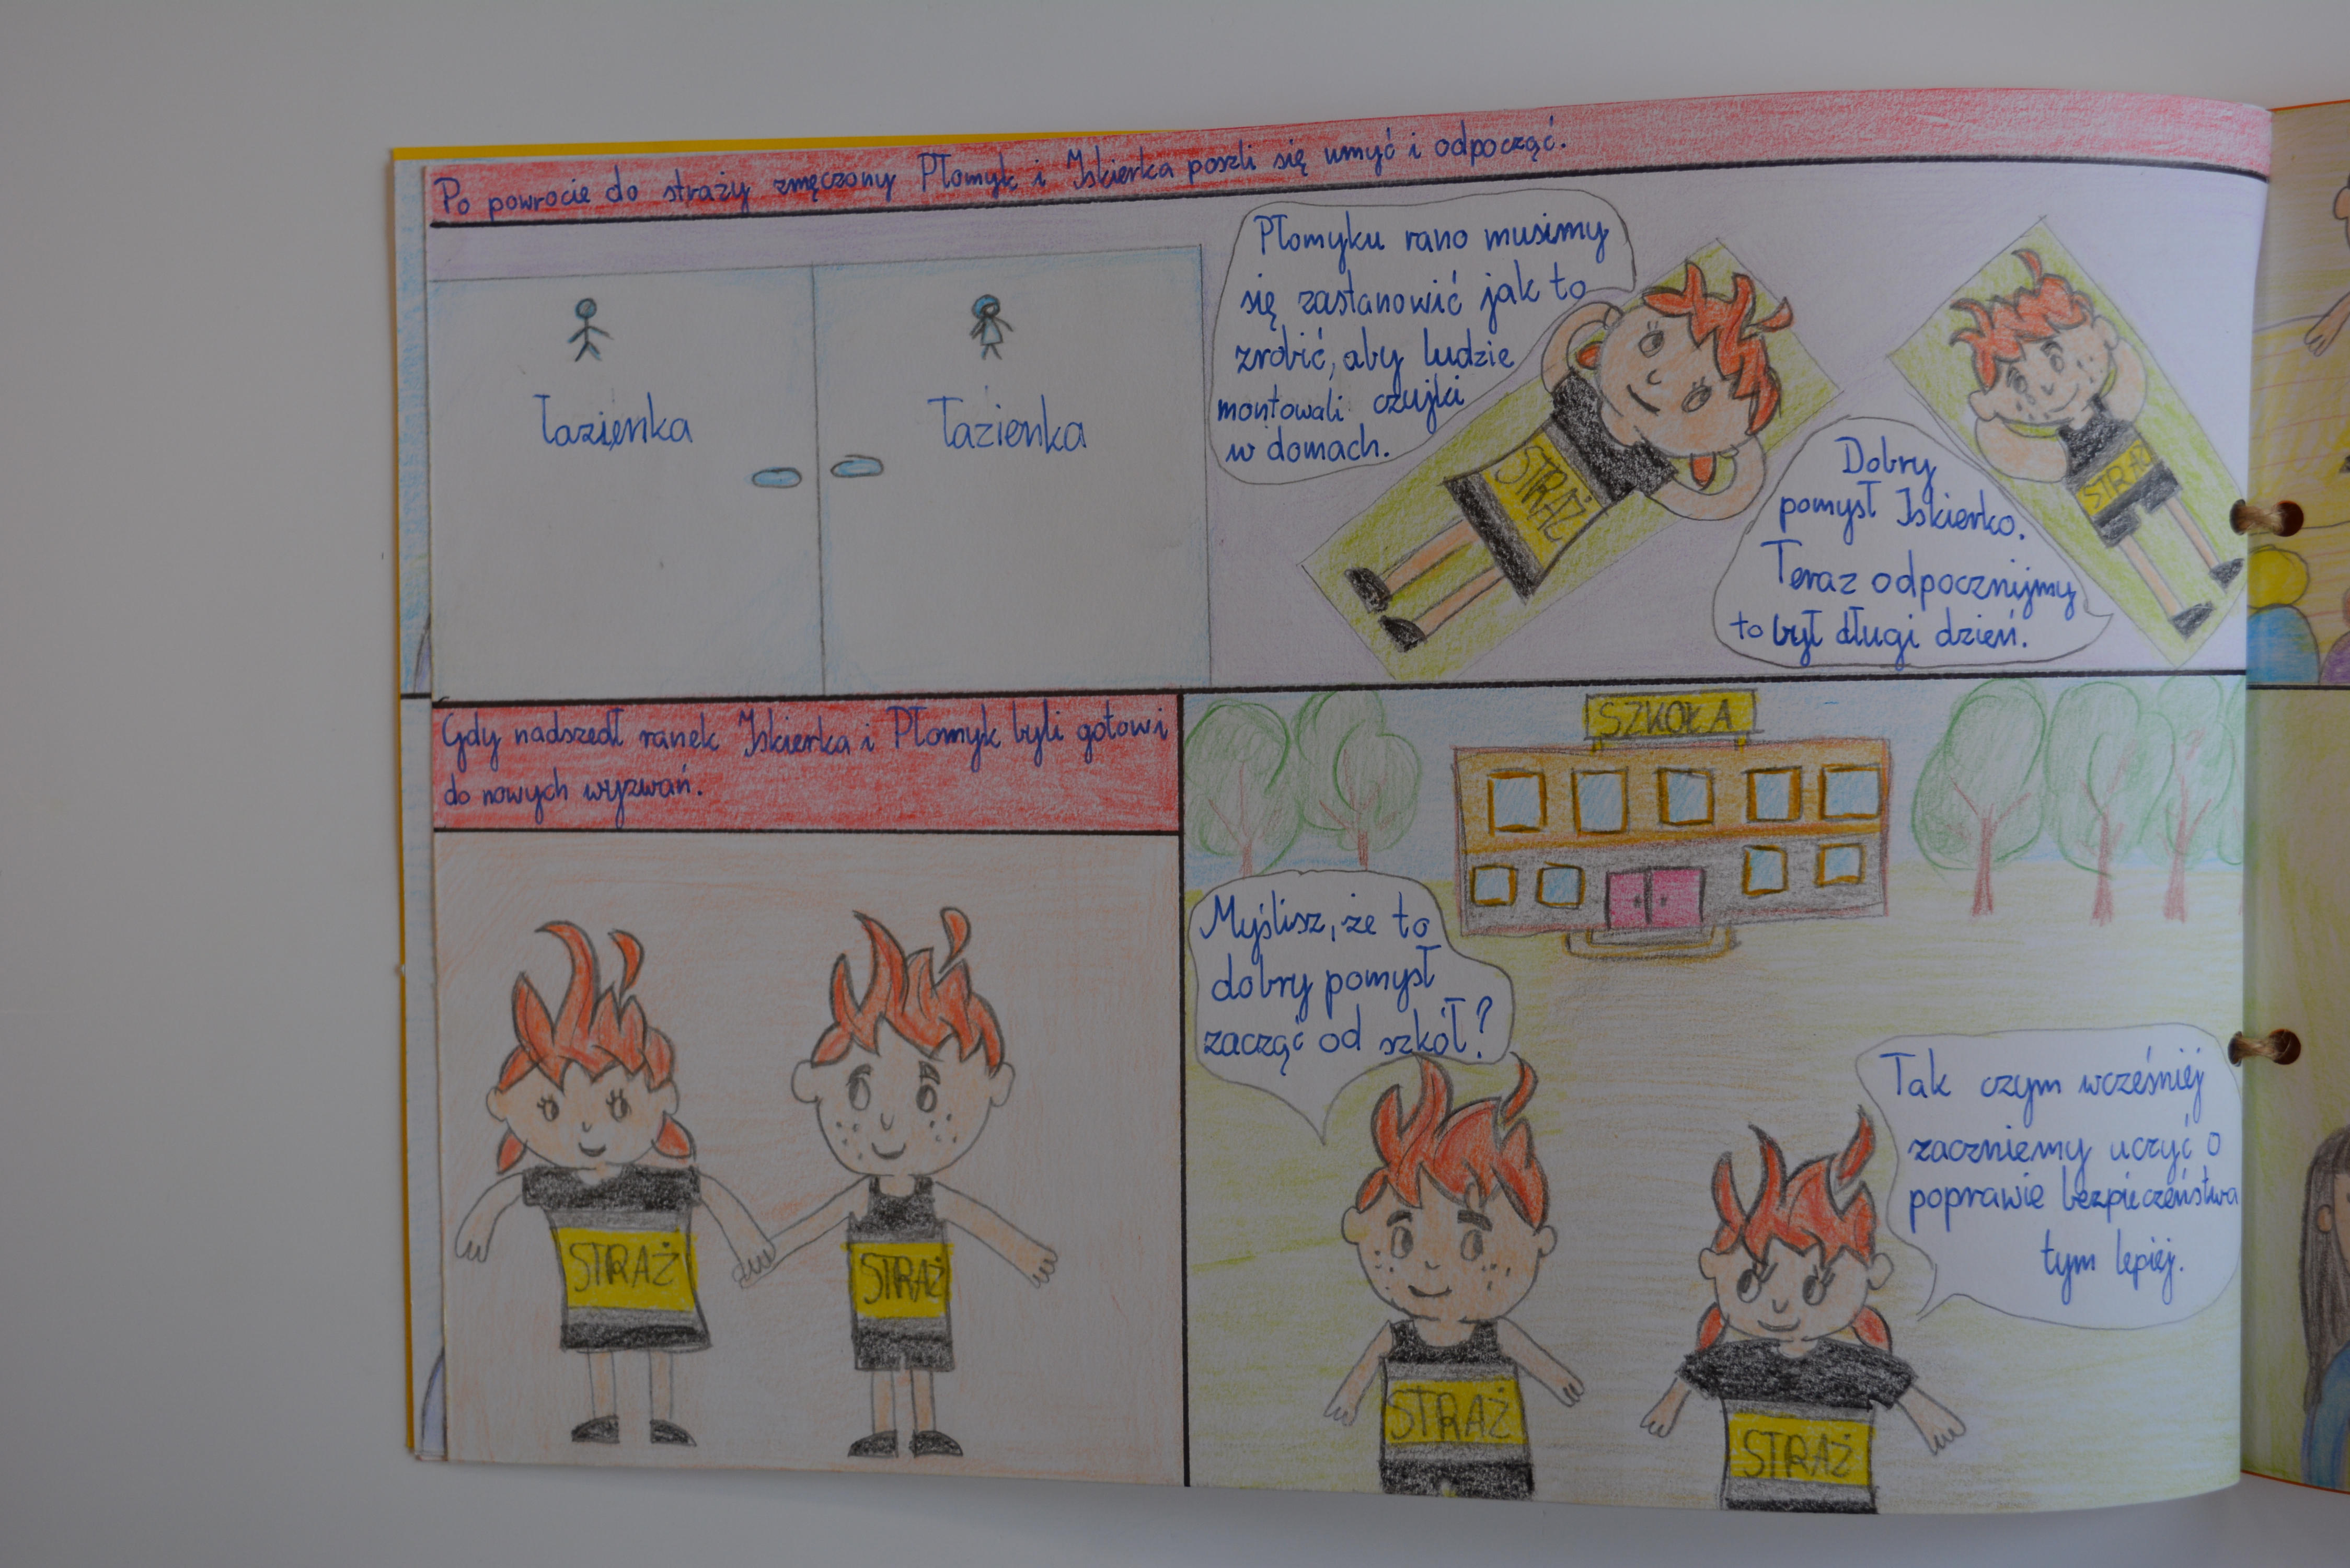 Po powrocie do straży zmęczony Płomyk i Iskierka poszli się umyć i odpocząć.
Łazienka
Łazienka
Płomyku rano musimy
się zastanowić jak to
zrobić, aby ludzie
montowali czujki
w domach.
STRAŻ
Dobry
pomysł Iskierko.
Teraz odpocznijmy
to był długi dzień.
STRAŻ
Gdy nadszedł ranek Iskierka i Płomyk byli gotowi
do nowych wyzwań.
STRAŻ
STRAŻ
SZKOŁA
Myślisz, że to
dobry pomysł
zacząć od szkół?
Tak czym wcześniej
zaczniemy uczyć o
poprawie bezpieczeństwa
tym lepiej.
STRAŻ
STRAŻ